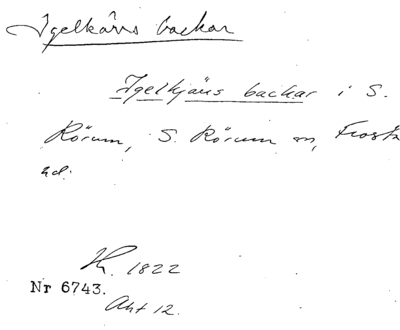 Igelkärrs backar
Igelkjäus backar i S.
Rörum, S. Rörum sn, Frosta
hd.
Kh. 1822
Nr 6743.
Akt 12.